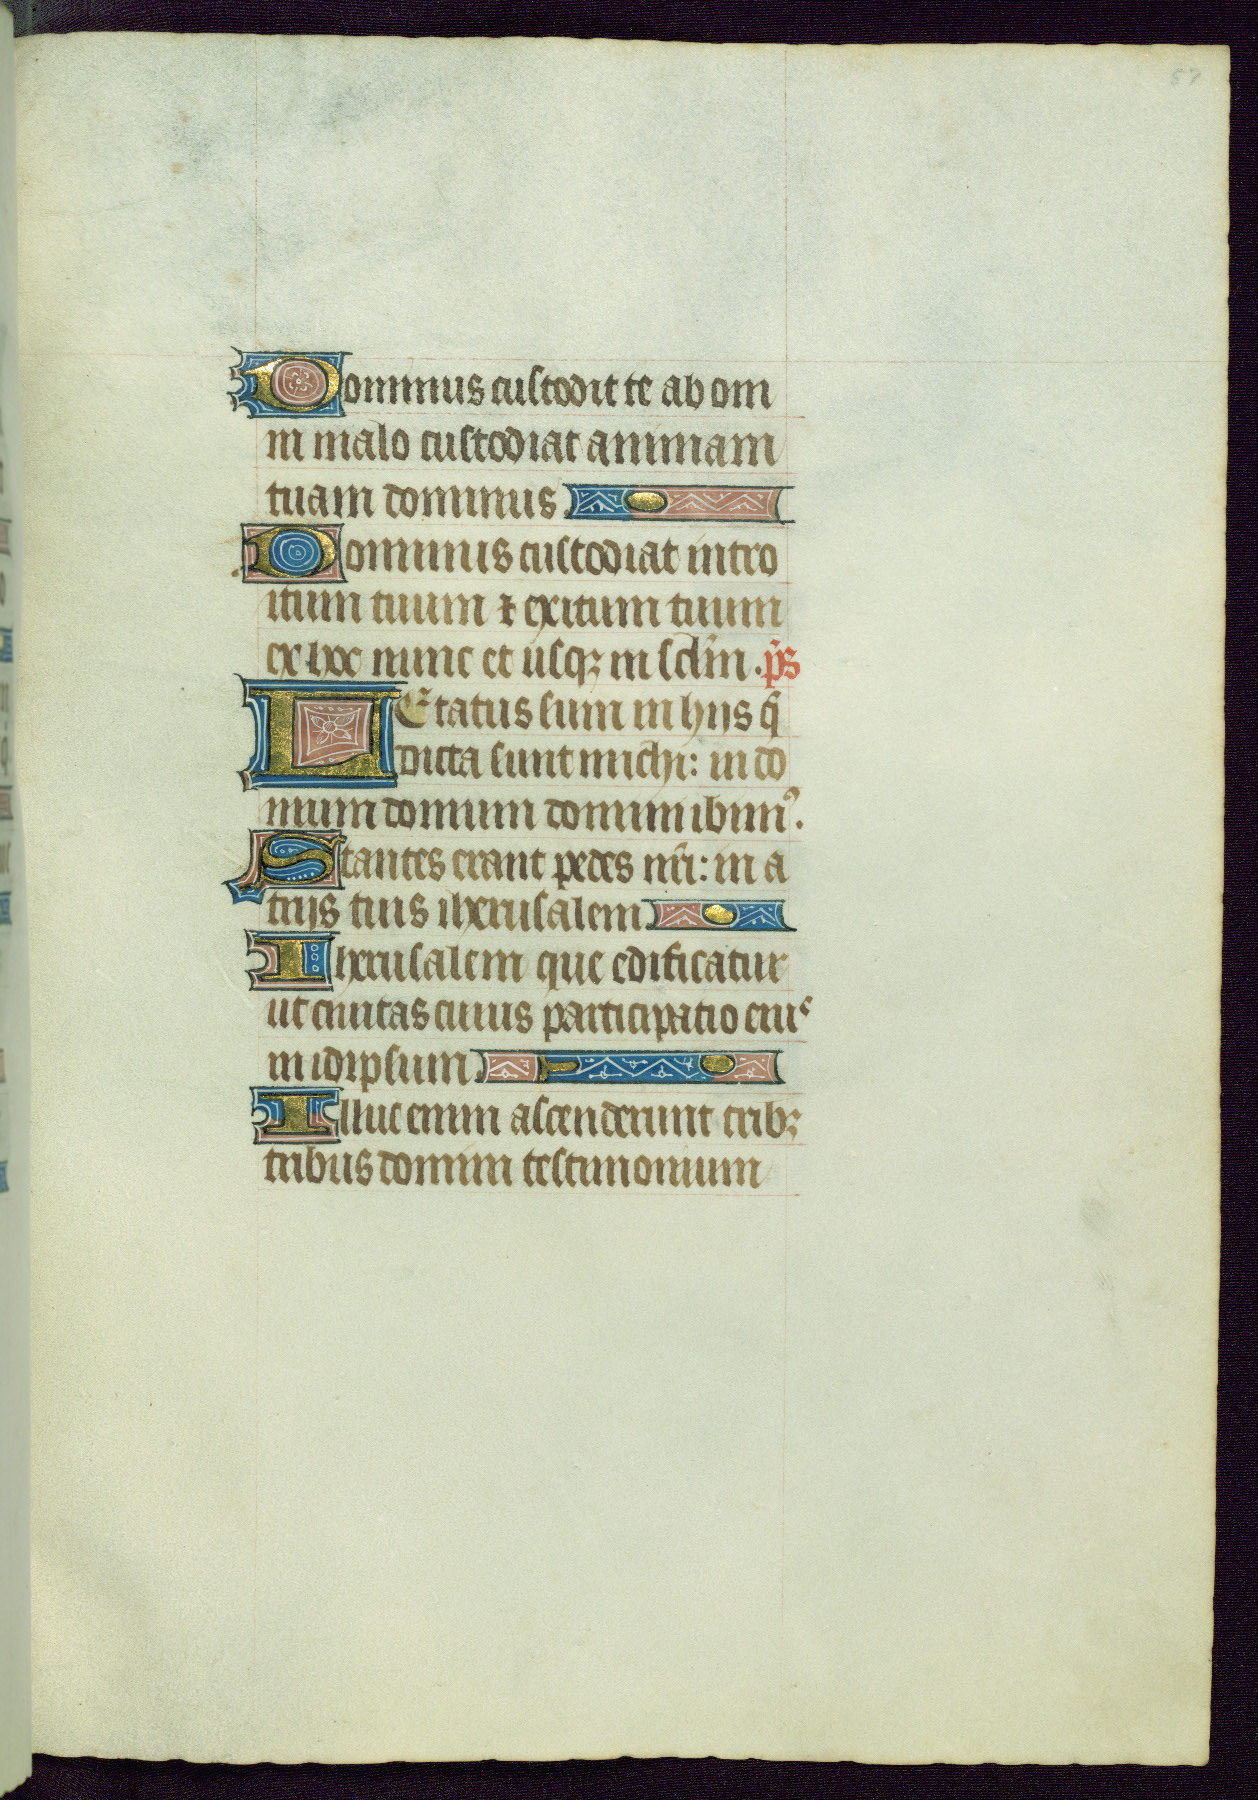 57
Dominus custodit te ab om
ni malo custodiat animam
tuam dominus.
Dominus custodiat intro
itum tuum ⁊ exitum tuum
ex hoc nunc et usqꝫ in sclm̄. ps̄
LEtatus sum in hijs q̄
dicta sunt michi: in do
mum domum domum ibimꝰ.
Stantes erant pedes nr̄i: in a
trijs tuis iherusalem.
Iherusalem que edificatur
ut ciuitas cuius participatio eiuˢ
in idipsum.
Illuc enim ascenderunt tribꝫ
tribus domini testimonium